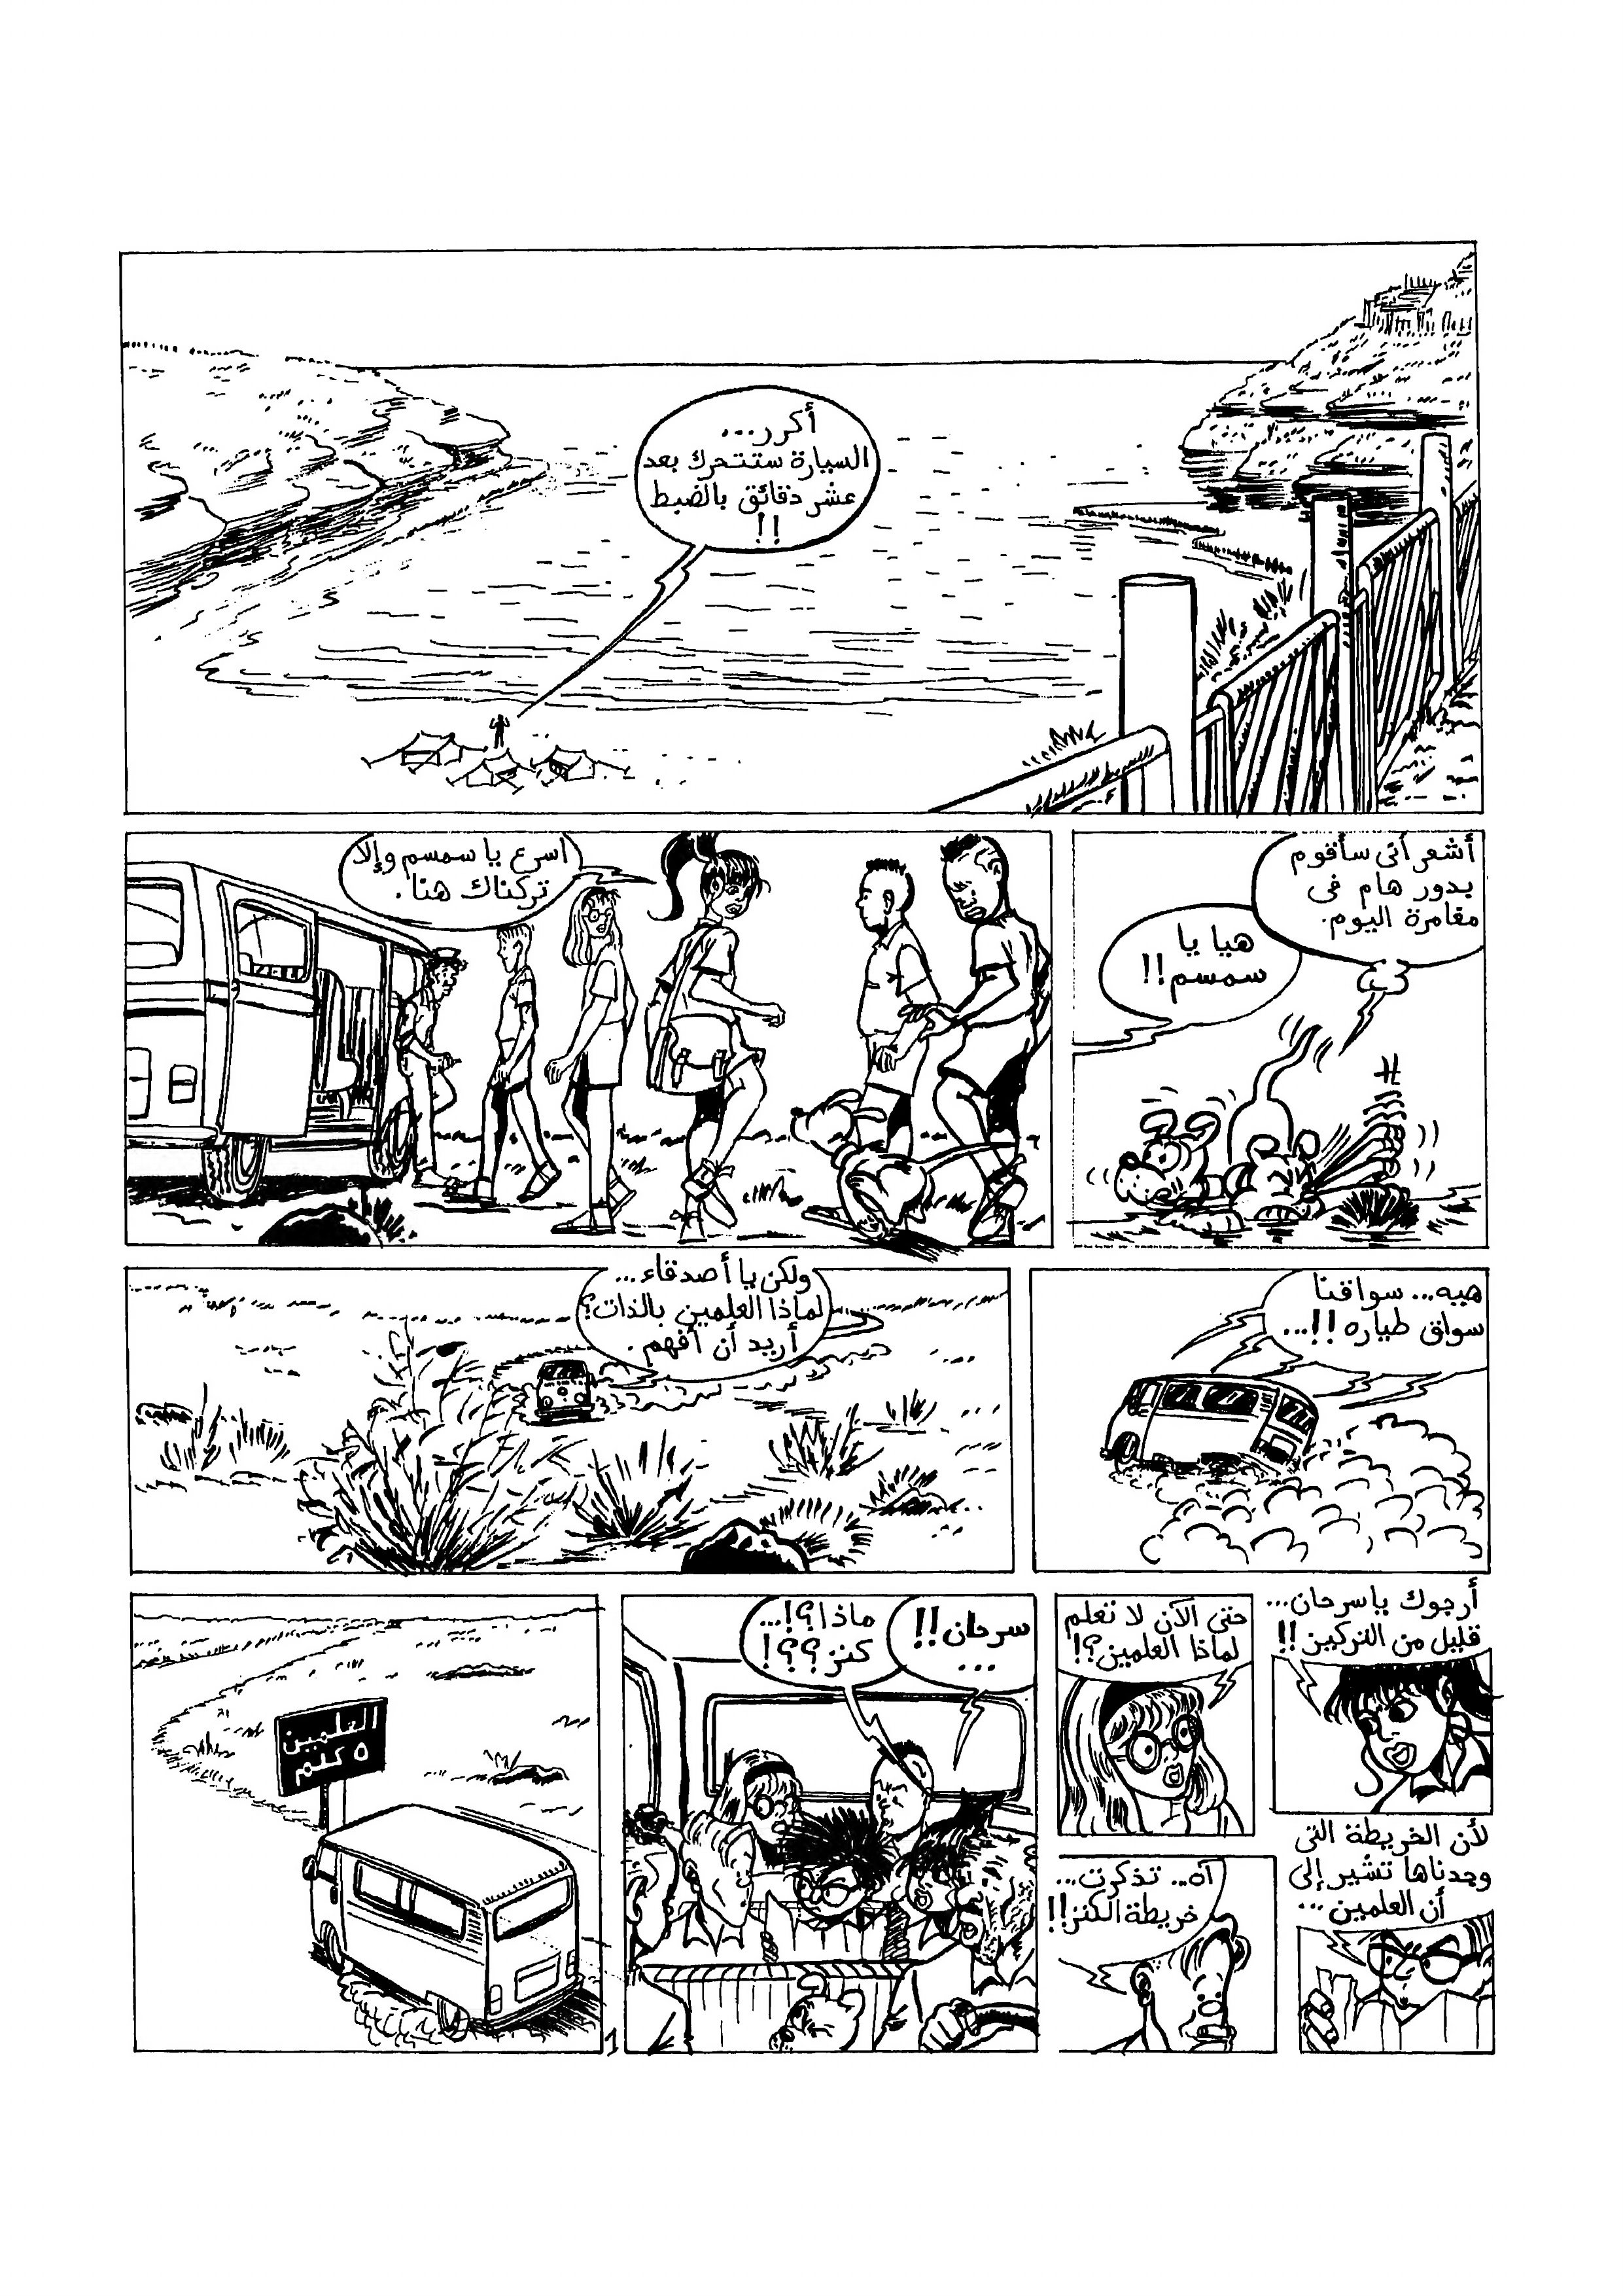 أكرر...
السيارة ستتحرك بعد
عشر دقائق بالضبط
!!
أشعر أنى سأقوم
بدور هام فى
مقامرة اليوم.
هيا يا
سمسم!!
اسرع يا سمسم وإلا
تركناك هنا.
هيه... سواقنا
سواق طياره!!...
ولكن يا أصدقاء...
لماذا العلمين بالذات؟
أريد أن أفهم.
أرجوك ياسرحان...
قليل من التركيز!!
حتى الآن لا تعلم
لماذا العلمين؟!
لأن الخريطة التى
وجدناها تشير إلى
أن العلمين...
آه... تذكرت...
خريطة الكنز!!
سرحان!!
...
ماذا؟!...
كنز؟؟!
العلمين
٥ كلم
1